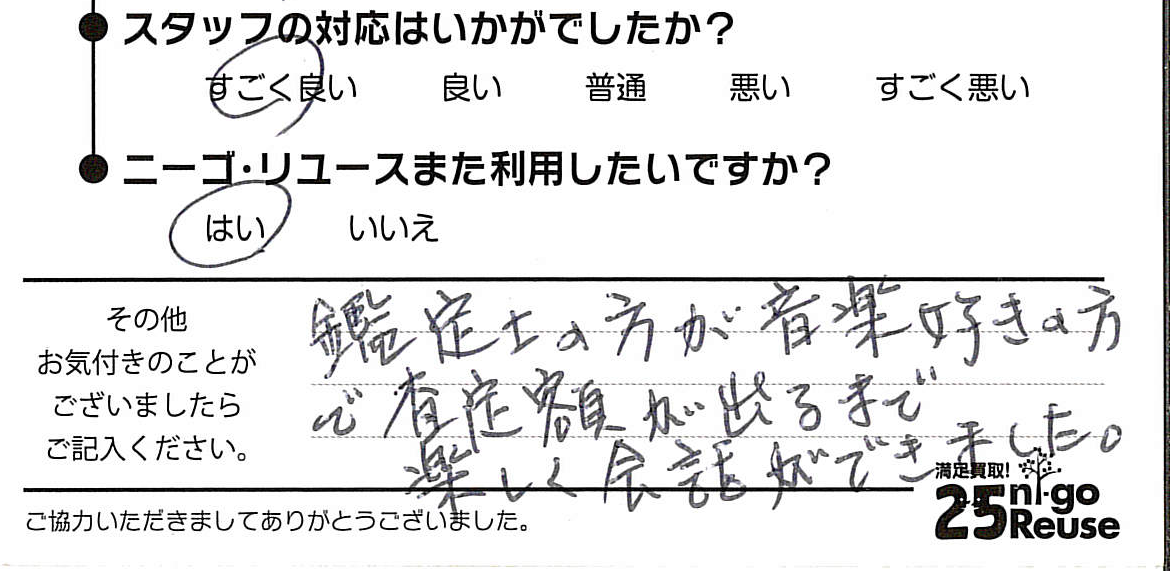 ● スタッフの対応はいかがでしたか？
すごく良い 良い 普通 悪い すごく悪い
● ニーゴ・リユースまた利用したいですか？
はい いいえ
その他
お気付きのことが
ございましたら
ご記入ください。
鑑定士の方が音楽好きの方
で査定額が出るまで
楽しく会話ができました。
満足買取!
25 ni-go
Reuse
ご協力いただきましてありがとうございました。